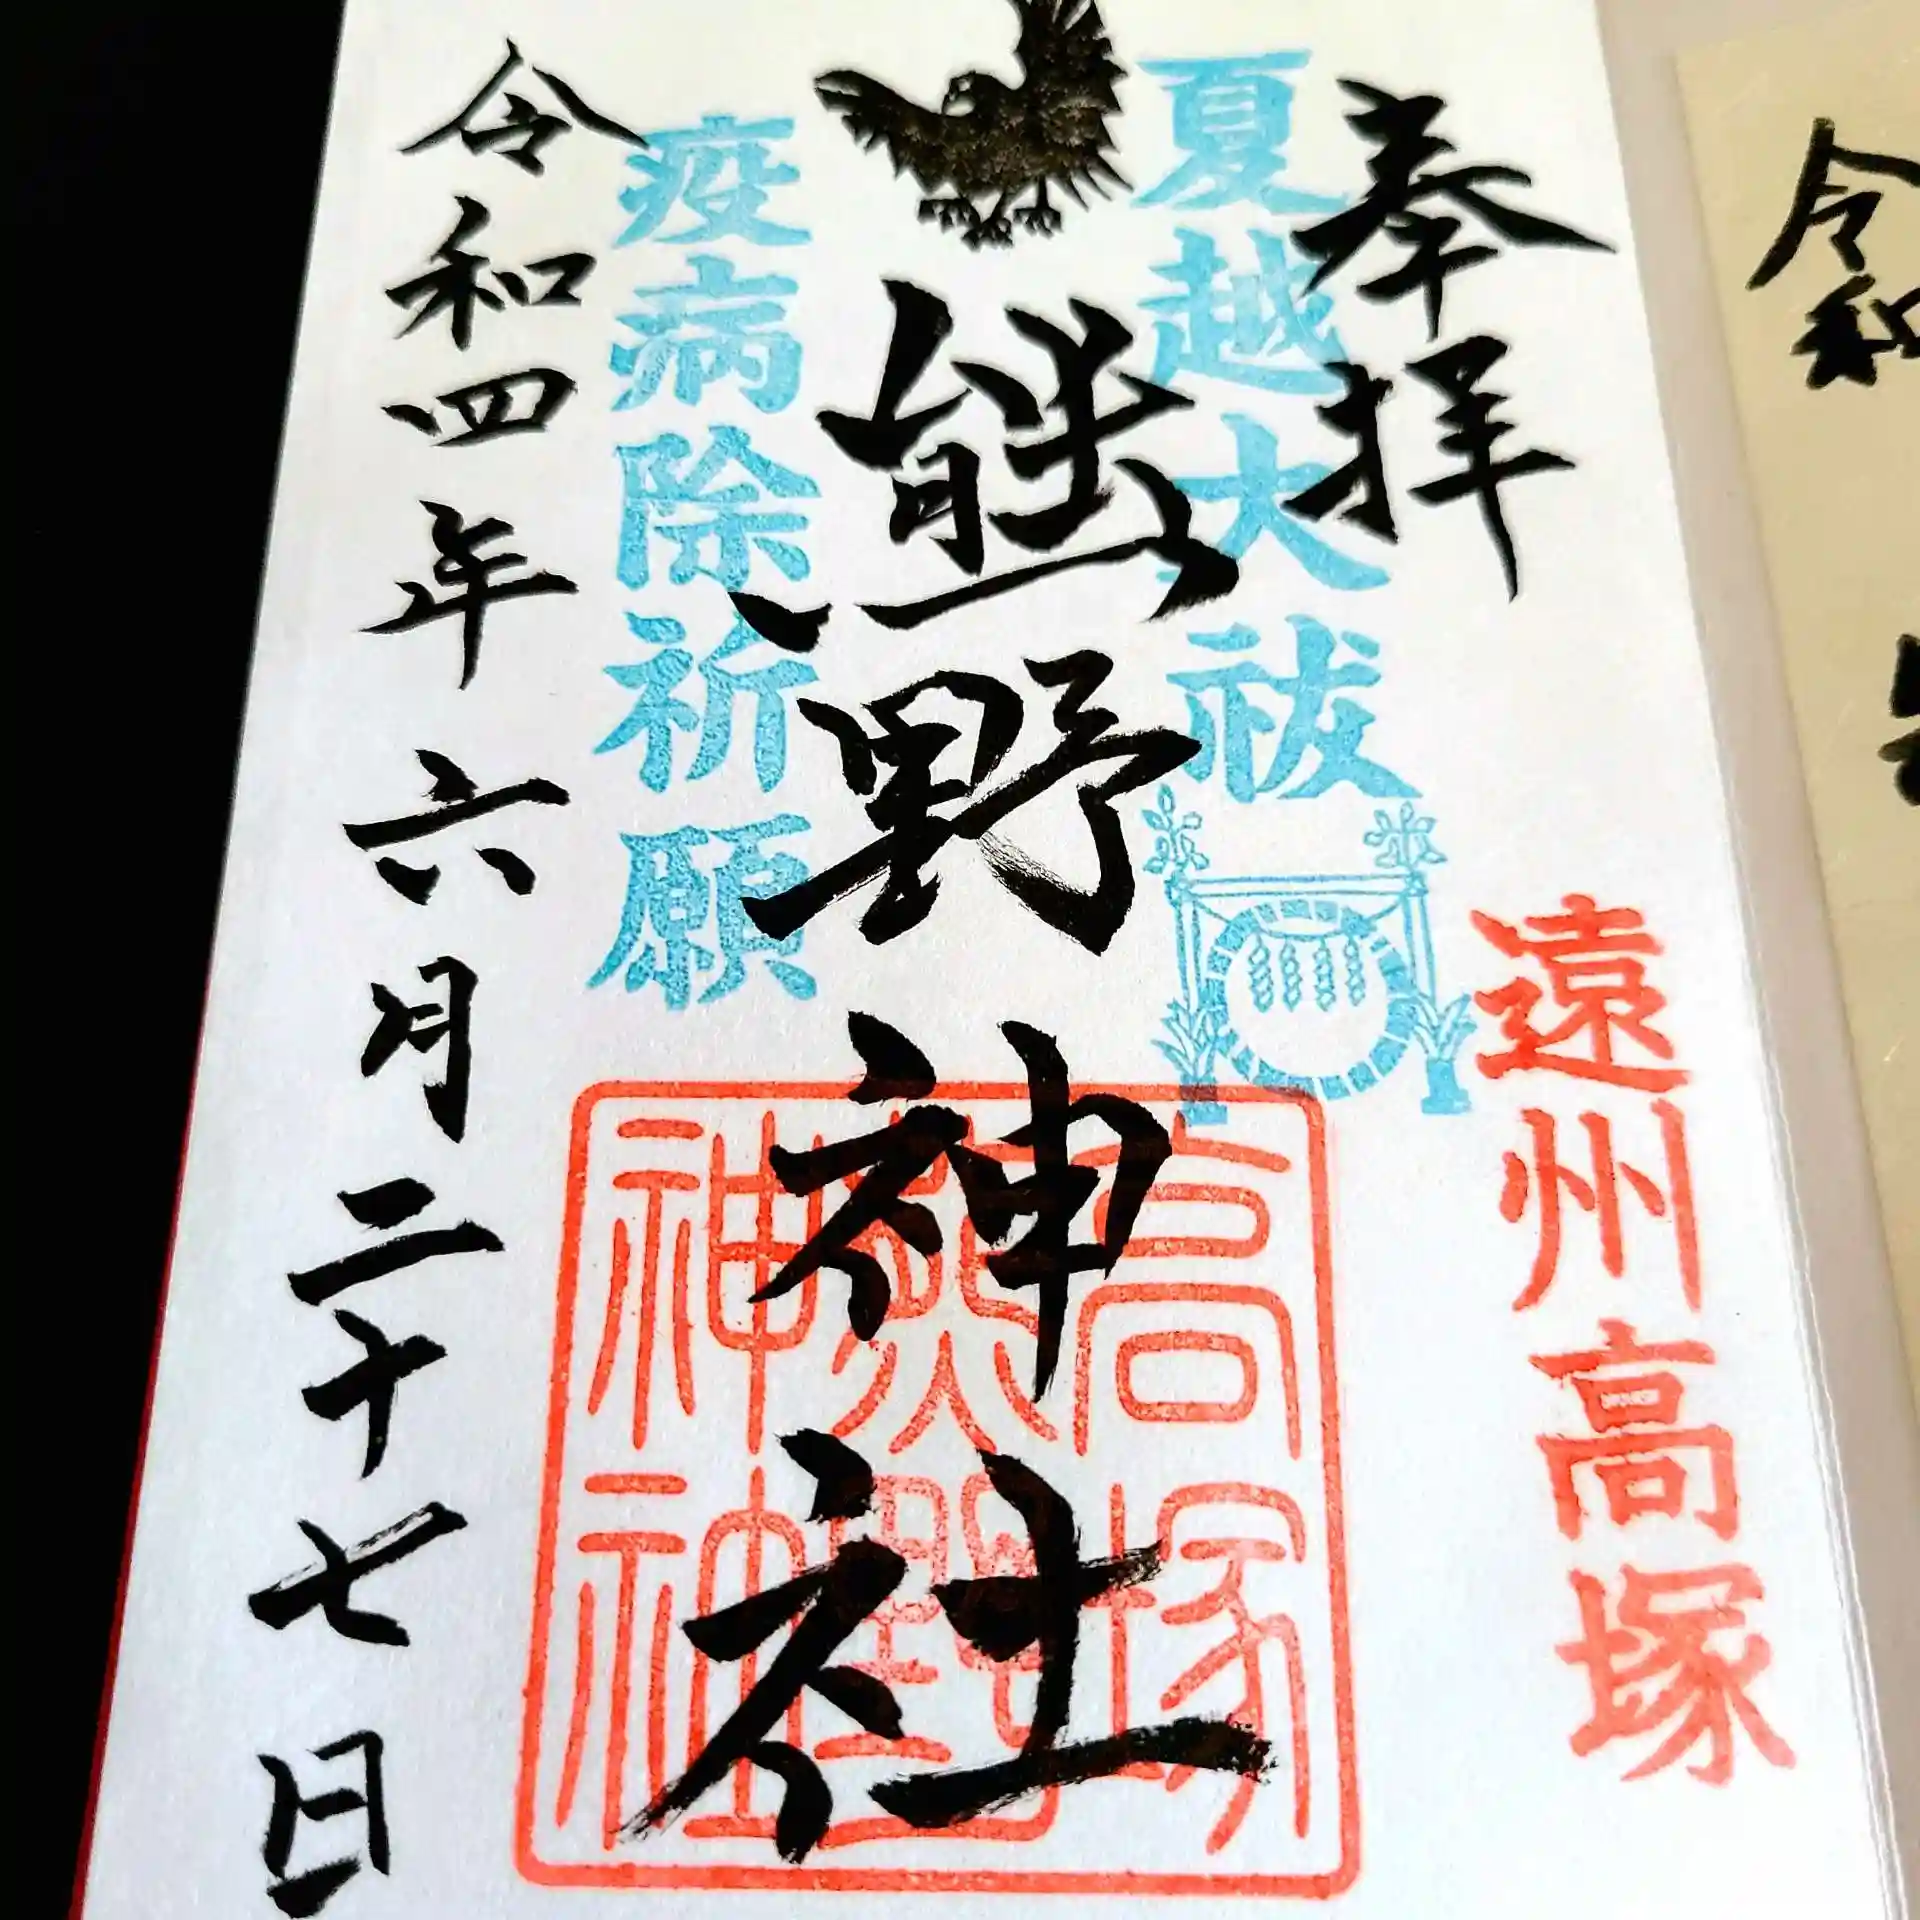 令和
奉拝
遠州高塚
夏越大祓
熊野神社
高塚
熊野
神社
疫病除祈願
令和四年六月二十七日